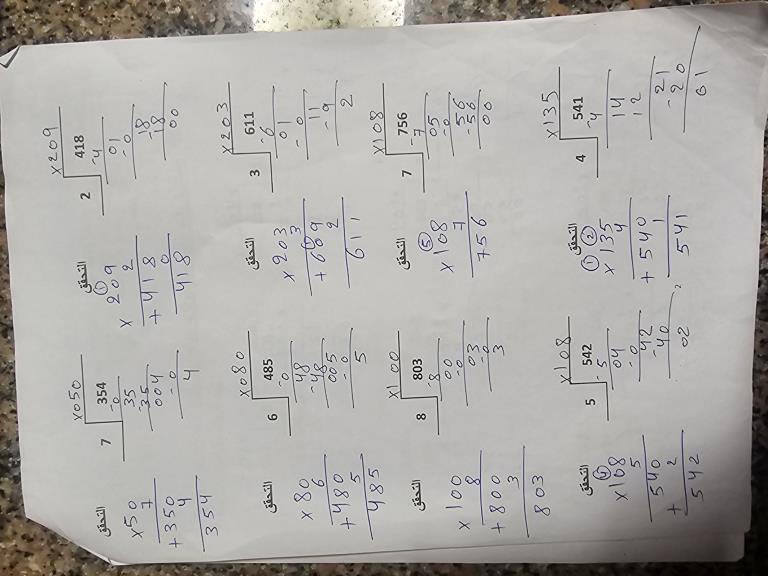 التحقق
×50
7
+350
4
354
×050
7 354
-0
35
-35
004
-0
4
التحقق
1
×209
2
+418
0
418
×209
2 418
-4
01
-0
18
-18
00
التحقق
×80
6
+480
5
485
×080
6 485
-0
48
-48
005
-0
5
التحقق
×203
3
+609
2
611
×203
3 611
-6
01
-0
11
-9
2
التحقق
×100
8
+800
3
803
×100
8 803
-8
00
-0
03
-0
3
التحقق
5
×108
7
756
×108
7 756
-7
05
-0
56
-56
00
التحقق
×108
5
540
+2
542
×108
5 542
-5
04
-0
42
-40
02
التحقق
1 2
×135
4
+540
1
541
×135
4 541
-4
14
12
21
-20
01